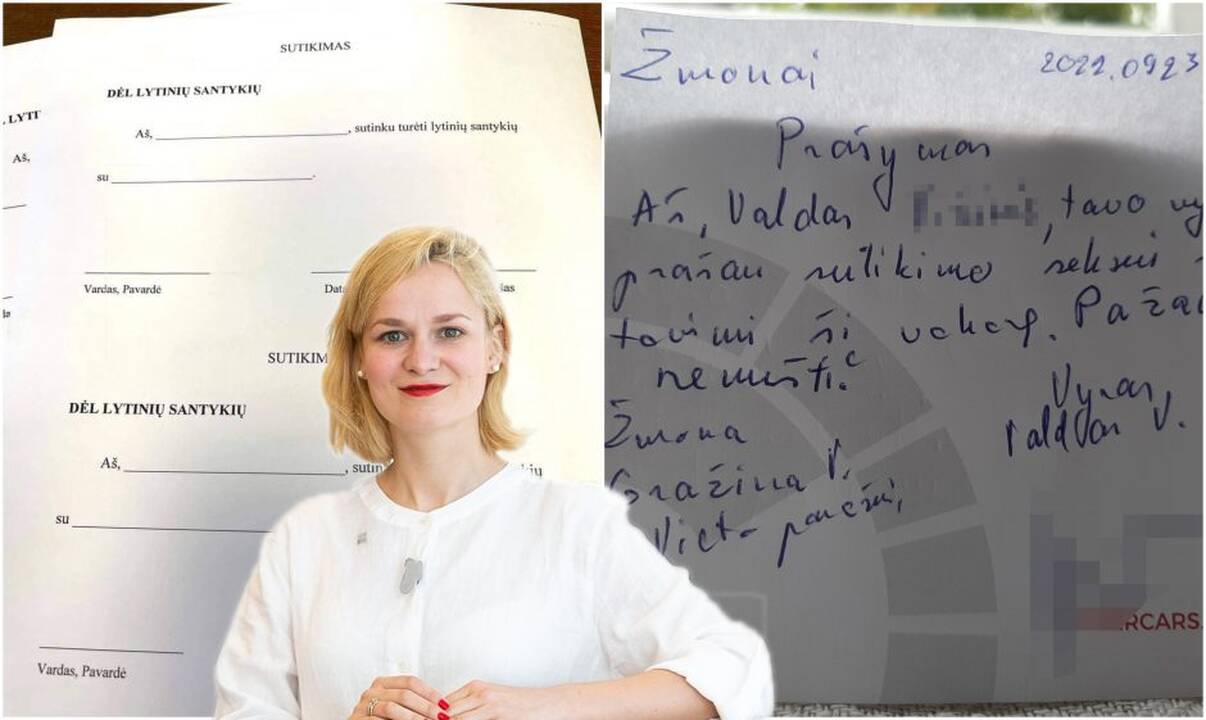 SUTIKIMAS
DĖL LYTINIŲ SANTYKIŲ
Aš, ____________, sutinku turėti lytinių santykių
su ____________.
Vardas, Pavardė
SUTIKIM
DĖL LYTINIŲ SANTYKIŲ
Aš, ____________, sutin
su ____________
Vardas, Pavardė
. LYTI
Aš,
Žmonai 2022.0923
Prašymas
Aš, Valdas , tavo vy
prašau sutikimo seksui
tavimi šį vakarą. Paža
nemušti.
Vyras,
Valdas V.
Žmona
Gražina V.
Vieta parašui,
RCARS.